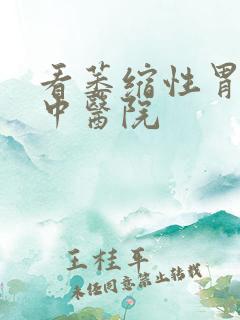 看萎缩性胃
中醫院
王桂平
未经同意禁止转载